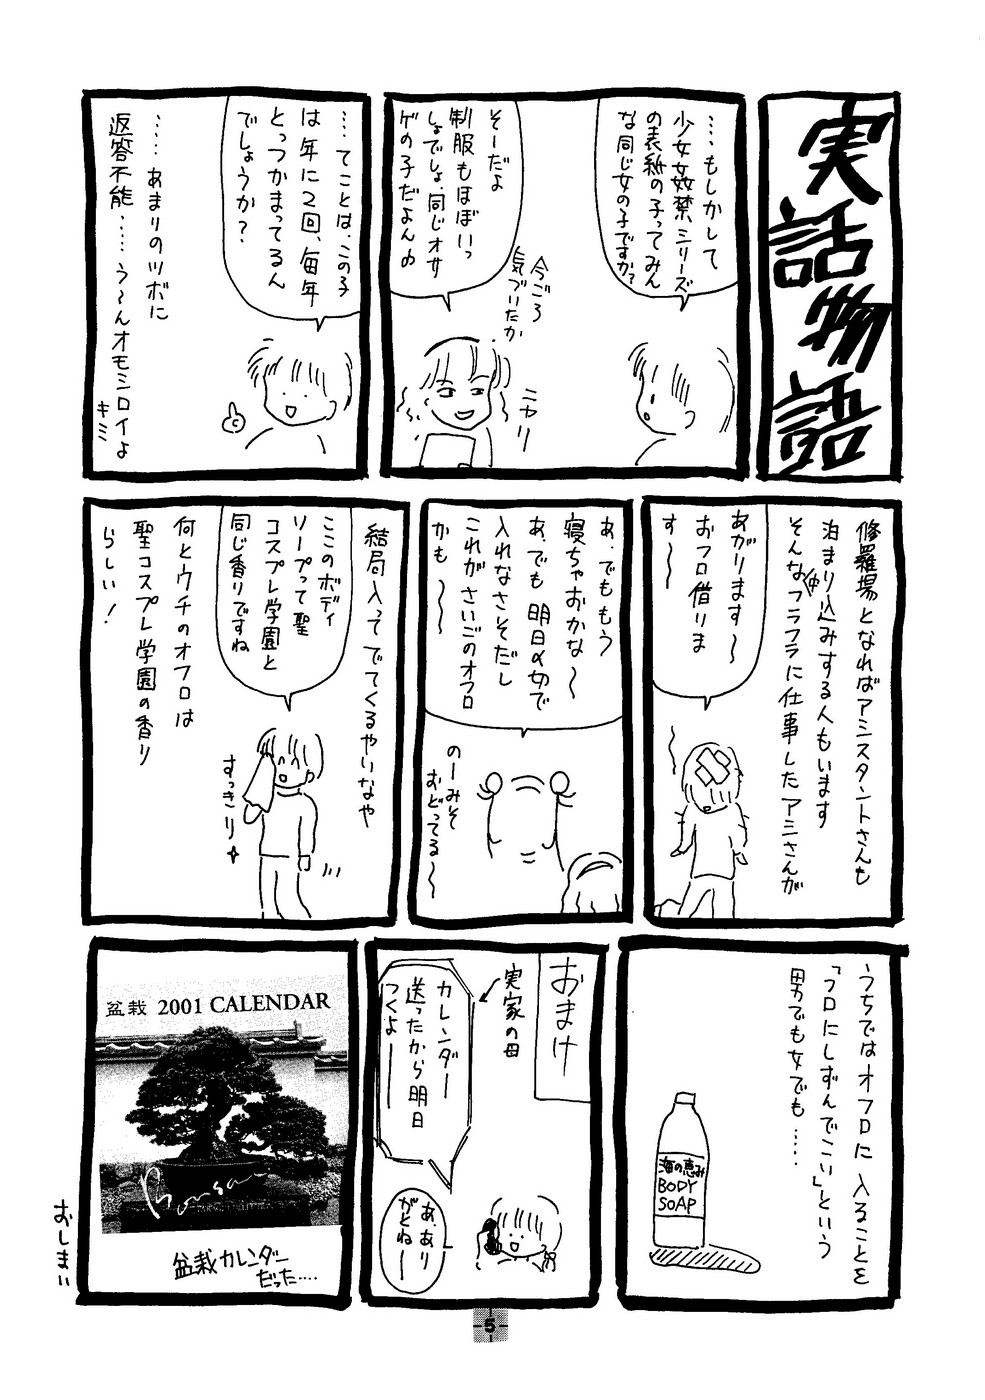 実話物語
……もしかして
少女姦禁シリーズ
の表紙の子ってみん
な同じ女の子ですか?
今ごろ
気づいたか
そーだよ
制服もほぼいっ
しょでしょ、同じオサ
ゲの子だよん♪
ニヤリ
…てことは、この子
は年に2回、毎年
とっつかまってるん
でしょうか?
……あまりのツボに
返答不能……う〜んオモシロイよ
キミ
修羅場となればアシスタントさんも
泊まり込みする人もいます
そんな中フラフラに仕事したアシさんが
あがります〜
おフロ借りま
す〜
あ、でももう
寝ちゃおかな〜
あ、でも明日〆切で
入れなさそだし
これがさいごのオフロ
かも〜〜
のーみそ
おどってる〜
結局入ってでてくるやいなや
ここのボディ
ソープって聖
コスプレ学園と
同じ香りですね
すっきりー
何とウチのオフロは
聖コスプレ学園の香り
らしい!
うちではオフロに入ることを
「フロにしずんでこい」という
男でも女でも……
海の恵み
BODY
SOAP
おまけ
実家の母
カレンダー
送ったから明日
つくよー
あ、あり
がとねー
盆栽 2001 CALENDAR
Bonsai
盆栽カレンダー
だった‥‥
おしまい
5